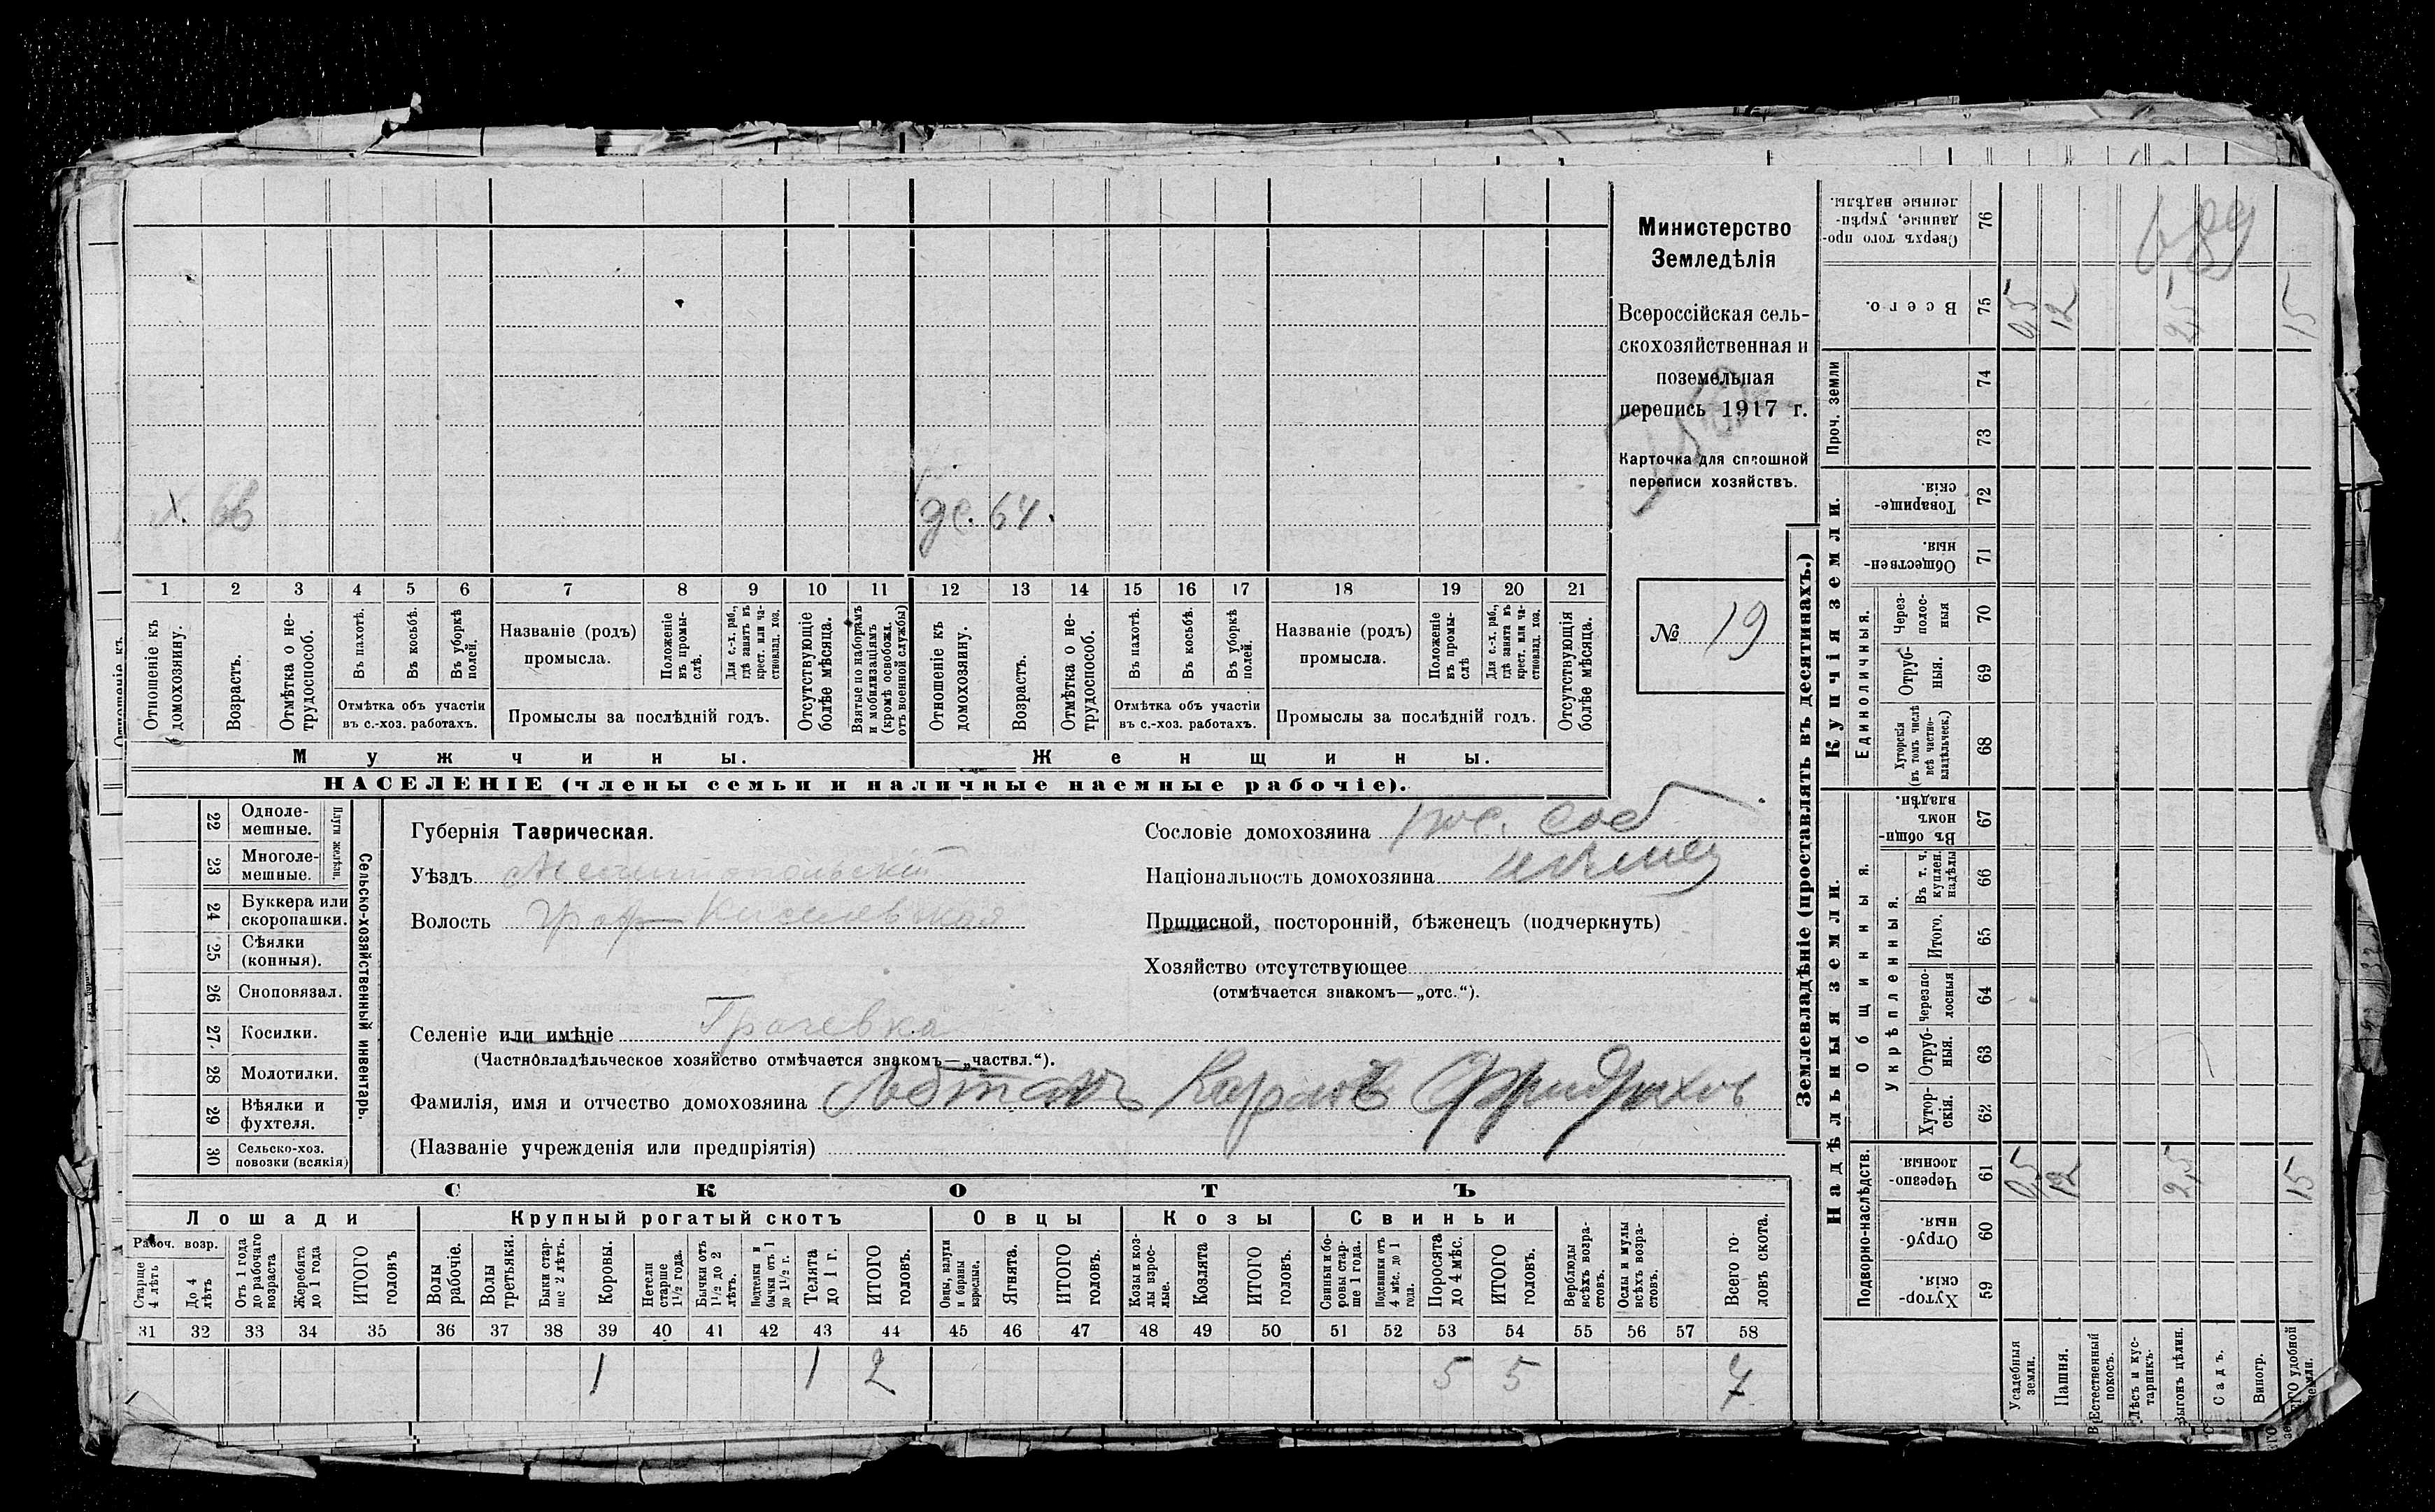 х. 66
ж. 64.
1 2 3 4 5 6 7 8 9 10 11 12 13 14 15 16 17 18 19 20 21
Отношеніе къ домохозяину.
Возрастъ.
Отмѣтка о не-
трудоспособ.
Въ пахотѣ.
Въ косьбѣ.
Въ уборкѣ
полей.
Отмѣтка объ участіи
въ с.-хоз. работахъ.
Названіе (родъ)
промысла.
Положеніе
въ промы-
слѣ.
Для с.-х. раб.,
гдѣ занятъ въ
крест. или ча-
стновлад. хоз.
Промыслы за послѣдній годъ.
Отсутствующіе
болѣе мѣсяца.
Взятые по наборамъ
и мобилизаціямъ
(кромѣ освобожд.
отъ военной службы)
Отношеніе къ
домохозяину.
Возрастъ.
Отмѣтка о не-
трудоспособ.
Въ пахотѣ.
Въ косьбѣ.
Въ уборкѣ
полей.
Отмѣтка объ участіи
въ с.-хоз. работахъ.
Названіе (родъ)
промысла.
Положеніе
въ промы-
слѣ
Для с.-х. раб.,
гдѣ занята въ
крест. или ча-
стновлад. хоз.
Промыслы за послѣдній годъ.
Отсутствующія
болѣе мѣсяца.
Мужчины.
Женщины.
НАСЕЛЕНІЕ (члены семьи и наличные наемные рабочіе).
Министерство
Земледѣлія
Всероссійская сель-
скохозяйственная и
поземельная
перепись 1917 г.
Карточка для сплошной
переписи хозяйствъ.
№ 19
22 Одноле-
мешные.
23 Многоле-
мешные.
Плуги желѣзн.
24 Буккера или
скоропашки.
25 Сѣялки
(конныя).
26 Сноповязал.
27 Косилки.
28 Молотилки.
29 Вѣялки и
фухтеля.
30 Сельско-хоз.
повозки (всякія)
Сельско-хозяйственный инвентарь.
Губернія Таврическая.
Уѣздъ Мелитопольскій
Волость Граф-Киселевская
Селеніе или имѣніе Грачевка
(Частновладѣльческое хозяйство отмѣчается знакомъ—„частвл.“).
Фамилія, имя и отчество домохозяина Карлъ Фридрихов
(Названіе учрежденія или предпріятія)
Сословіе домохозяина пос. соб
Національность домохозяина нѣмец
Приписной, посторонній, бѣженецъ (подчеркнуть)
Хозяйство отсутствующее
(отмѣчается знакомъ—„отс.“).
СКОТЪ
Лошади
Крупный рогатый скотъ
Овцы
Козы
Свиньи
Рабоч. возр.
Старше
4 лѣтъ
До 4
лѣтъ
Отъ 1 года
до рабочаго
возраста
Жеребята
до 1 года
ИТОГО
головъ
Волы
рабочіе.
Волы
третьяки.
Быки стар-
ше 2 лѣтъ.
Коровы.
Нетели
старше
1½ года.
Бычки отъ
1½ до 2
лѣтъ.
Подтелки и
бычки отъ 1
до 1½ г.
Телята
до 1 г.
ИТОГО
головъ.
Овцы, валухи
и бараны
взрослые.
Ягнята.
ИТОГО
головъ.
Козы и коз-
лы взрос-
лые.
Козлята
ИТОГО
головъ.
Свиньи и бо-
ровы стар-
ше 1 года.
Подсвинки отъ
4 мѣс. до 1
года.
Поросята
до 4 мѣс.
ИТОГО
головъ.
Верблюды
всѣхъ возра-
стовъ.
Ослы и мулы
всѣхъ возра-
стовъ.
Всего го-
ловъ скота.
31 32 33 34 35 36 37 38 39 40 41 42 43 44 45 46 47 48 49 50 51 52 53 54 55 56 57 58
1 1 2 5 5 7
Землевладѣніе (проставлять въ десятинахъ.)
Надѣльныя земли.
Купчія земли.
Проч. земли
Подворно-наслѣдств.
Общинныя.
Укрѣпленныя.
Единоличныя.
Сверхъ того про-
данные, укрѣп-
ленные надѣлы. 76
Всего. 75
74
73
Товарище-
скія. 72
Обществен-
ныя. 71
Через-
полос-
ныя 70
Отруб-
ныя. 69
Хуторскія
(въ томъ числѣ
всѣ частно-
владѣльческ.) 68
Въ общин-
номъ
владѣн. 67
Въ т. ч.
куплен.
надѣлы 66
Итого. 65
Черезпо-
лосныя 64
Отруб-
ныя. 63
Хутор-
скія. 62
Черезпо-
лосныя. 61
Отруб-
ныя. 60
Хутор-
скія. 59
689
0,5 12 2,5 15
0,5 12 2,5 15
Усадебныя
земли.
Пашня.
Естественный
покосъ.
Лѣсъ и кус-
тарникъ.
Выгонъ цѣлин.
Садъ.
Виногр.
удобной
земли.